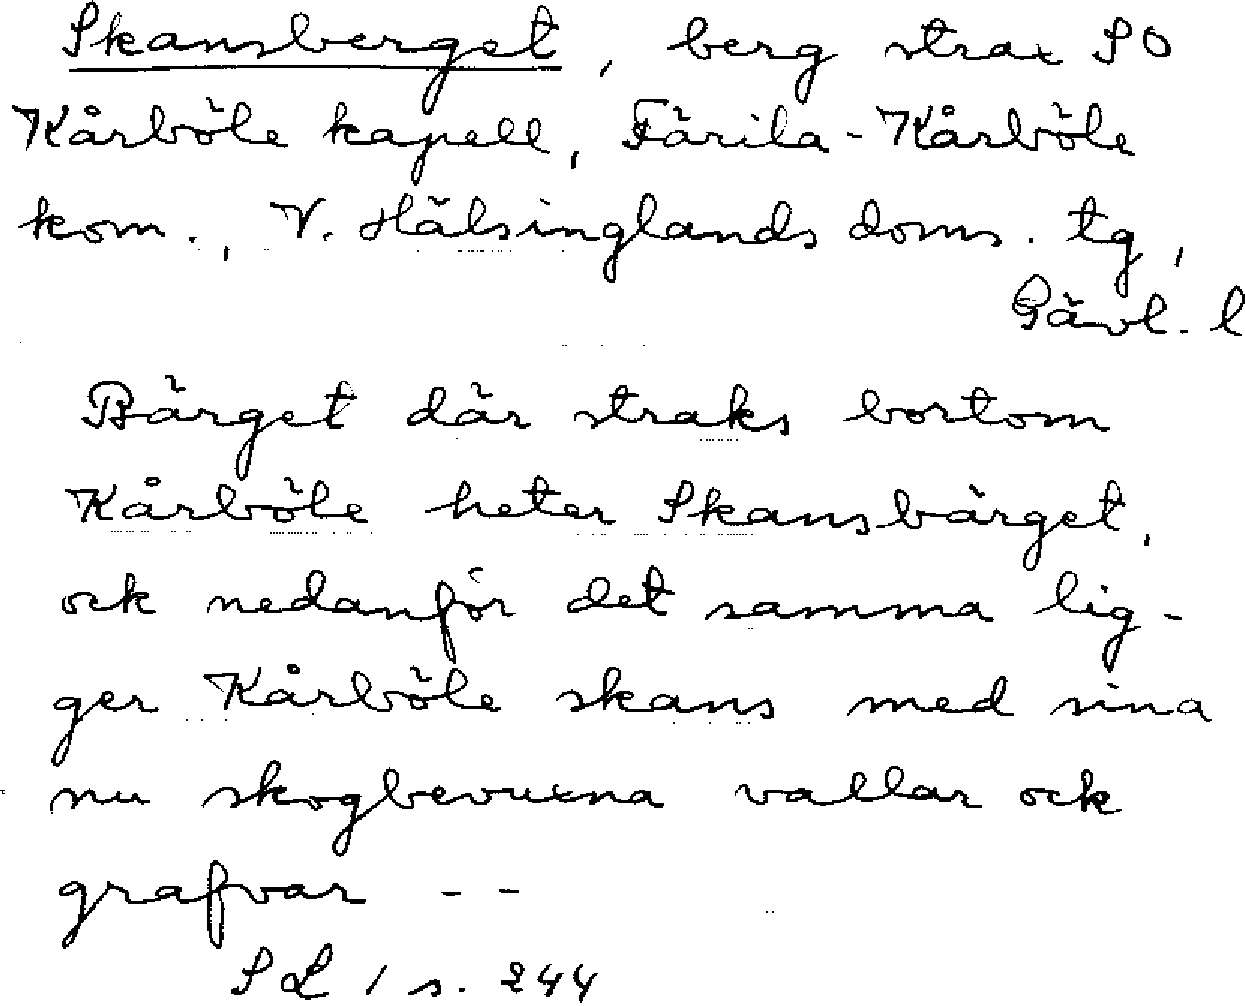 Skansberget, berg strax SO
Kårböle kapell, Färila-Kårböle
kom., V. Hälsinglands doms. tg,
Gävl. l
Bärget där straks bortom
Kårböle heter Skansbärget,
ock nedanför det samma lig-
ger Kårböle skans med sina
nu skogbevuxna vallar ock
grafvar - -
SL 1 s. 244